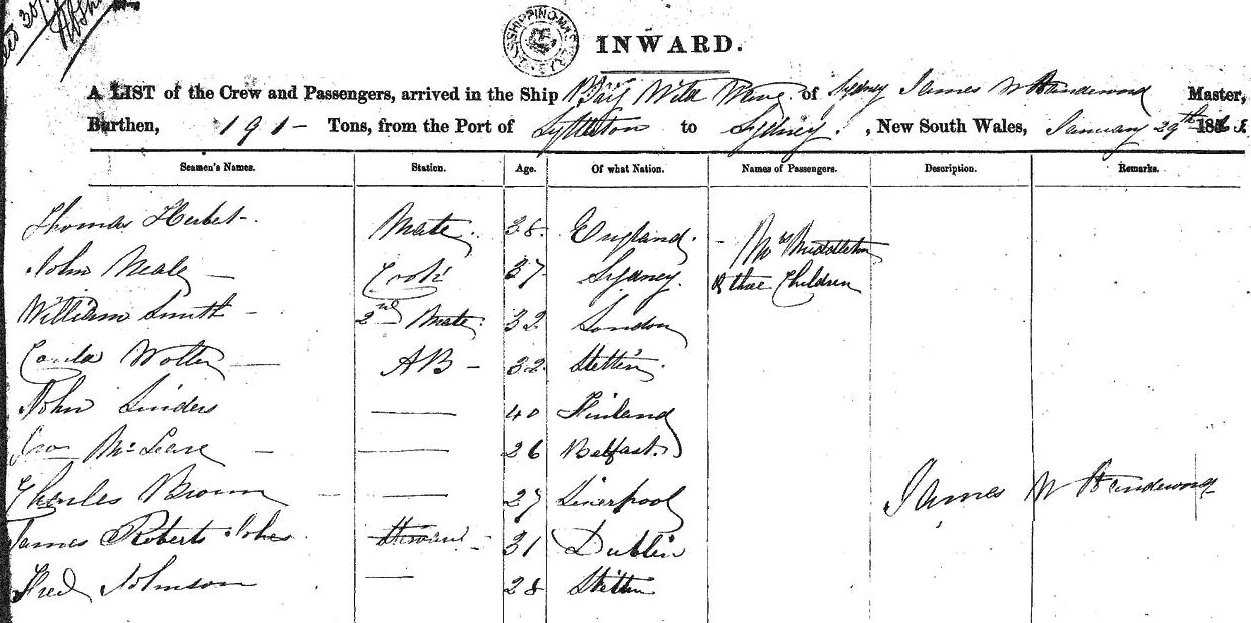 INWARD.
A LIST of the Crew and Passengers, arrived in the Ship Wild Wave of Sydney James W Master,
Burthen, 191 - Tons, from the Port of Lyttleton to Sydney. , New South Wales, January 29th 186
Seamen's Names. Station. Age. Of what Nation. Names of Passengers. Description. Remarks.
Thomas Herbet - Mate. 38 England. - Mrs Middleton
John Neale - Cook 37 Sydney. & three Children
William Smith - 2nd Mate. 32 London
Wolter - AB - 32 Stettin.
John Linders — 40 Finland
McLeare - — 26 Belfast.
Charles Brown - — 27 Liverpool James W
James Roberts Steward - 31 Dublin
Fred Johnson — 28 Stettin